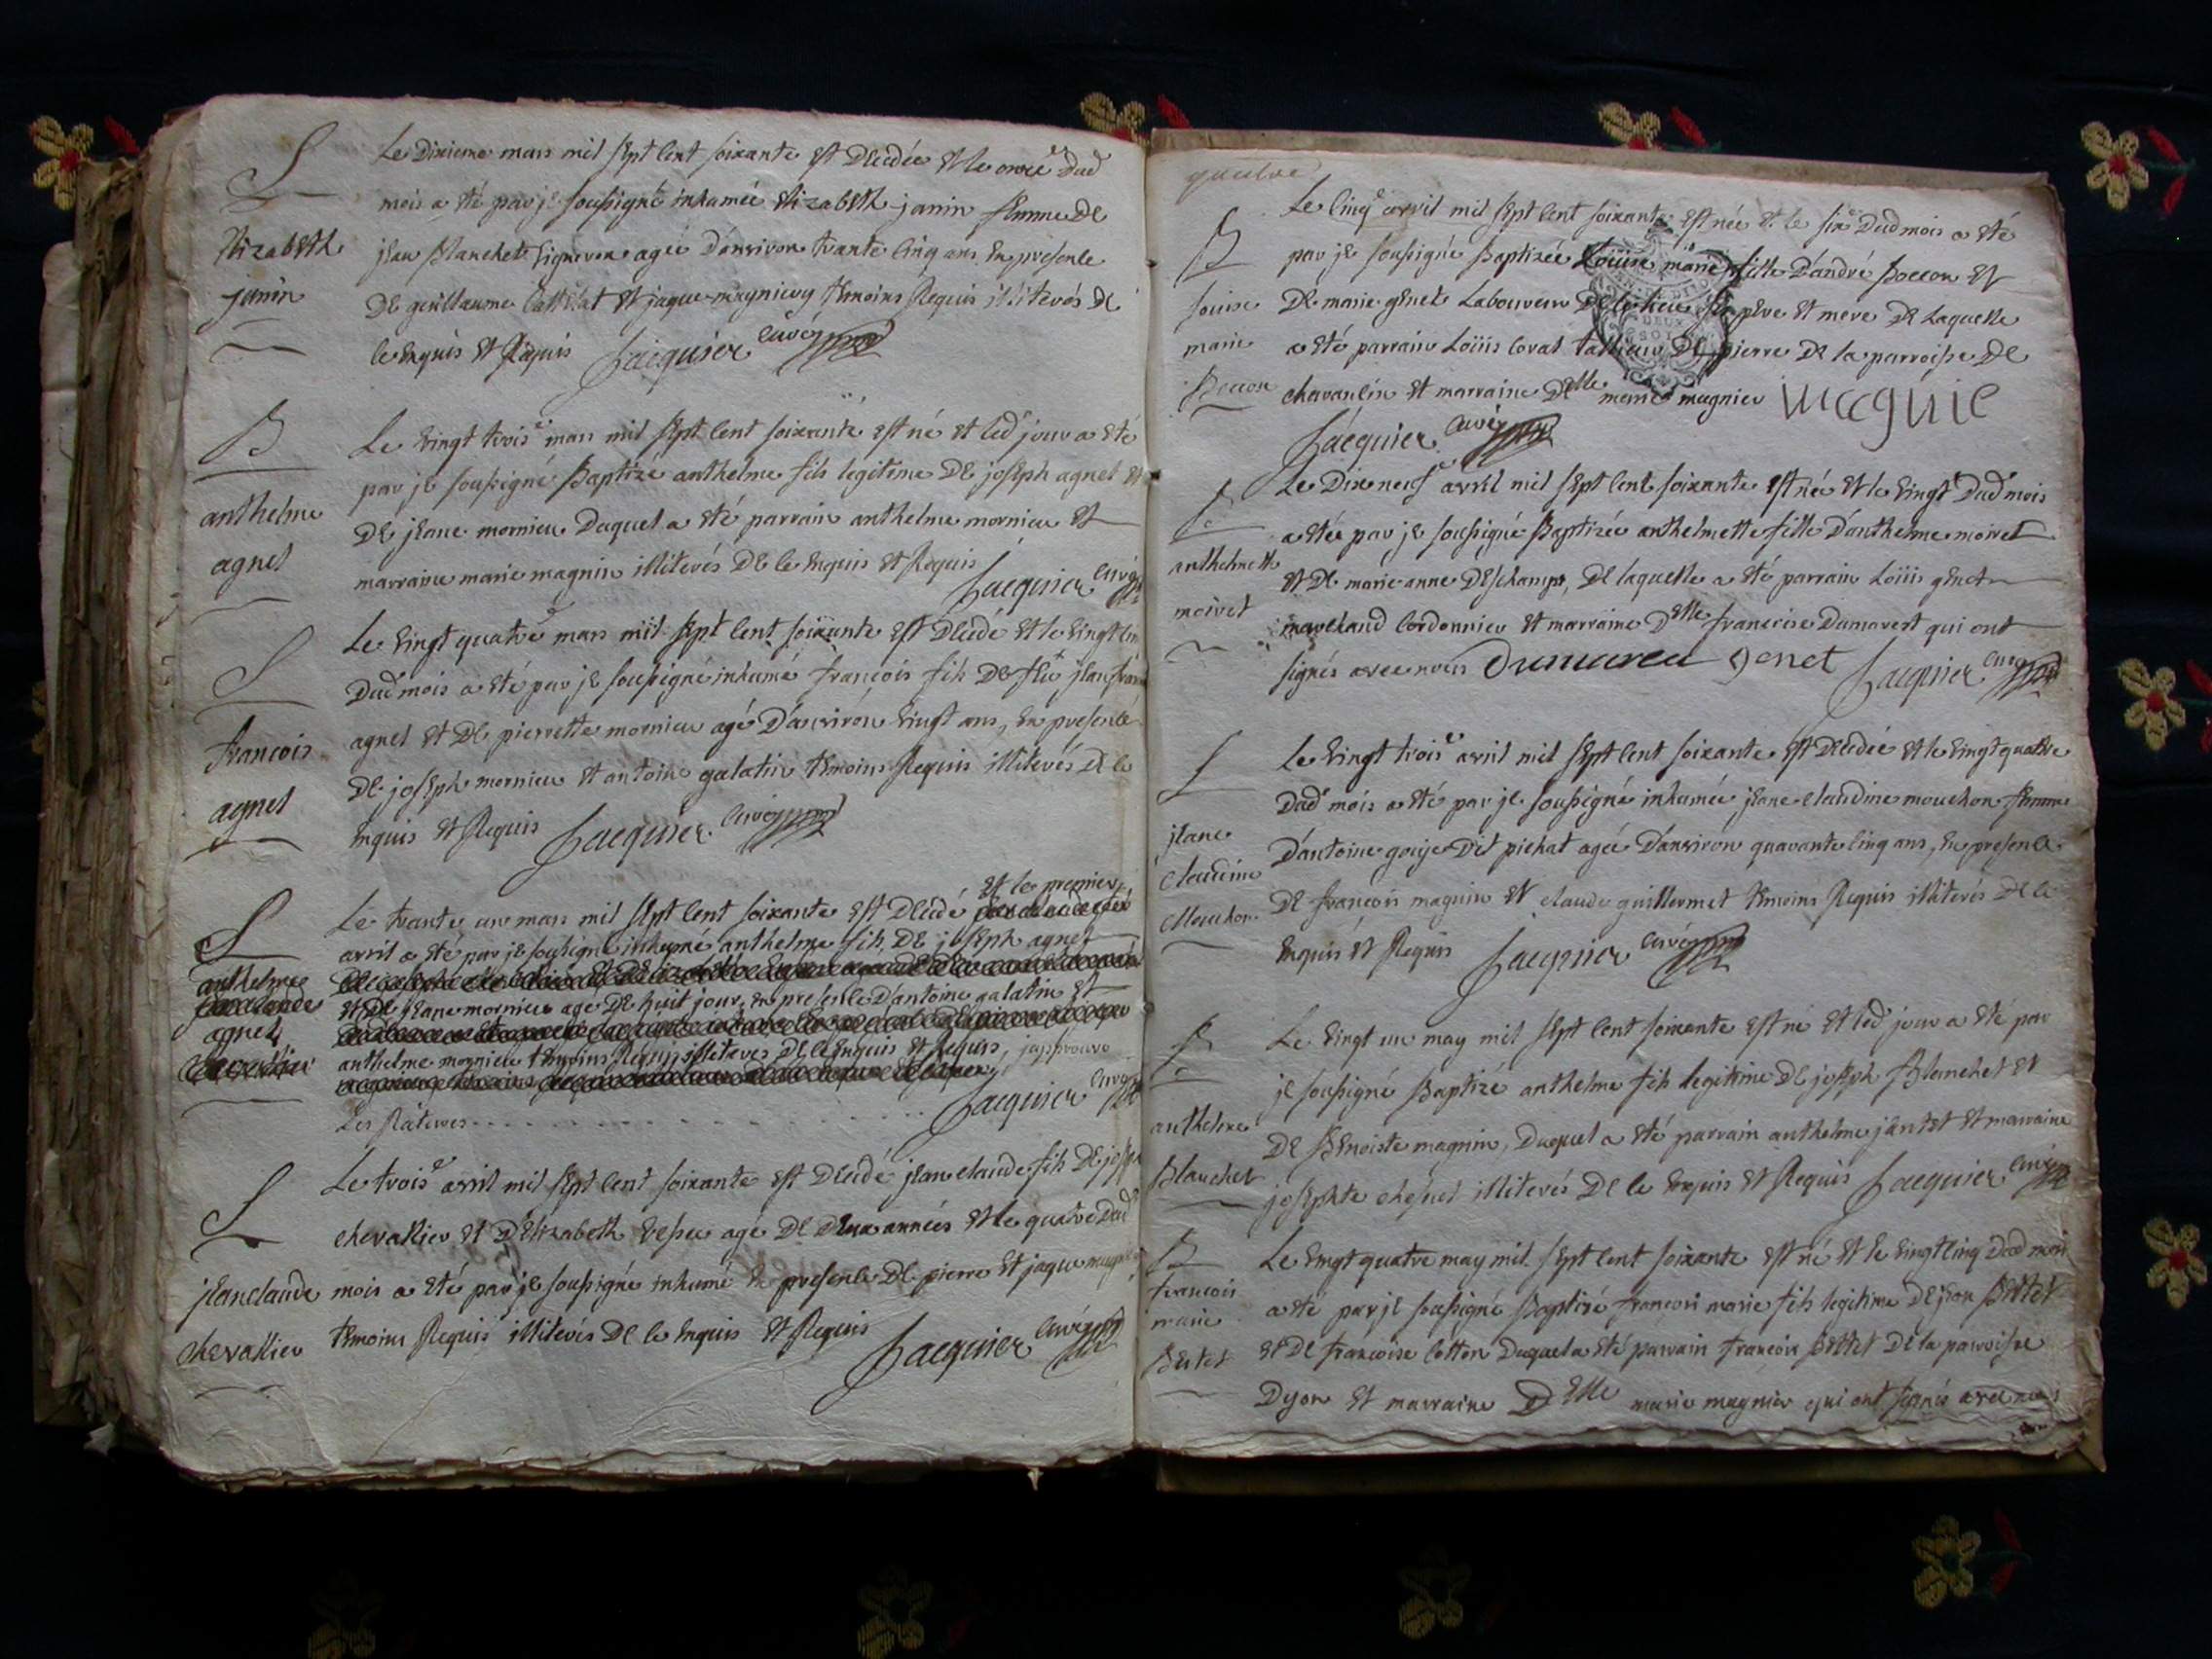 S
Elizabeth
janin
Le Dixieme mars mil sept cent soixante est decedée et le onze dud
mois a été par je soussigné inhumée elizabeth janin femme de
jean Blanchet vigneron agée d'anviron trante cinq ans en presence
de guillaume et jaque magnieu temoins Requis illiterés de
ce enquis et Requis Jacquier curé
B
anthelme
agnel
Le vingt trois mars mil sept cent soixante est né et led jour a été
par je soussigné Baptizé anthelme fils legitime de joseph agnel et
de jeane mornieu Duquel a été parrain anthelme mornieu et
marraine marie magnin illiterés de ce enquis et Requis
Jacquier curé
S
francois
agnel
Le vingt quatre mars mil sept cent soixante est decedé et le vingt cin
Dud mois a été par je soussigné inhumé françois fils de feu jean fran
agnel et de pierrette mornieu agé d'anviron vingt ans, en presence
de joseph mornieu et antoine galatin temoins Requis illiterés de ce
enquis et Requis Jacquier curé
S
anthelme
agnel
Le trante un mars mil sept cent soixante est decedé et le premier
avril a été par je soussigné inhumé anthelme fils de joseph agnel
et de jeane mornieu agé de huit jour en presence d'antoine galatin et
anthelme mornieu temoins Requis illiterés de ce enquis et Requis, japprouve
Les Ratures Jacquier curé
S
jeanclaude
chevallier
Le trois avril mil sept cent soixante est decedé jean claude fils de joseph
chevallier et d'Elizabeth agé de deux années et le quatre Dud
mois a été par je soussigné inhumé en presence de pierre et jaque
temoins Requis illiterés de ce enquis et Requis Jacquier curé
quatre
B
Louise
marie
Boccon
Le cinq avril mil sept cent soixante est née et le six Dud mois a été
par je soussigné Baptizée Loüise marie fille d'andré Boccon et
de marie genet Laboureur de ce lieu ses pere et mere de Laquelle
a été parrain Loüis coral de pierre de la parroisse de
et marraine Delle marie magnier
Jacquier curé
B
anthelmette
moiret
Le Dix neuf avril mil sept cent soixante est née et le vingt Dud mois
a étée par je soussigné Baptizée anthelmette fille d'anthelme moiret
et de marie anne Deschamps, de laquelle a été parrain Loüis genet
marchand cordonnier et marraine Delle francoise Dumarest qui ont
signés avec nous genet Jacquier curé
S
jeane
claudine
Mouchon
Le vingt trois avril mil sept cent soixante est decedée et le vingt quatre
Dud mois a été par je soussigné inhumée jeane claudine mouchon femme
d'antoine gouje Dit pichat agée d'anviron quarante cinq ans, en presence
de françois magnin et claude guillermet temoins Requis illiterés de ce
enquis et Requis Jacquier curé
B
anthelme
Blanchet
Le vingt un may mil sept cent soixante est né et led jour a été par
je soussigné Baptizé anthelme fils legitime de joseph Blanchet et
de Benoiste magnin, Duquel a été parrain anthelme jantet et marraine
josephte illiterés de ce enquis et Requis Jacquier curé
B
francois
marie
Bertet
Le vingt quatre may mil sept cent soixante est né et le vingt cinq Dud mois
a été par je soussigné Baptizé françois marie fils legitime de jean Bertet
et de françoise cotton Duquel a été parrain françois Bertet de la parroisse
Dyon et marraine Delle marie magnier qui ont signés avec nous